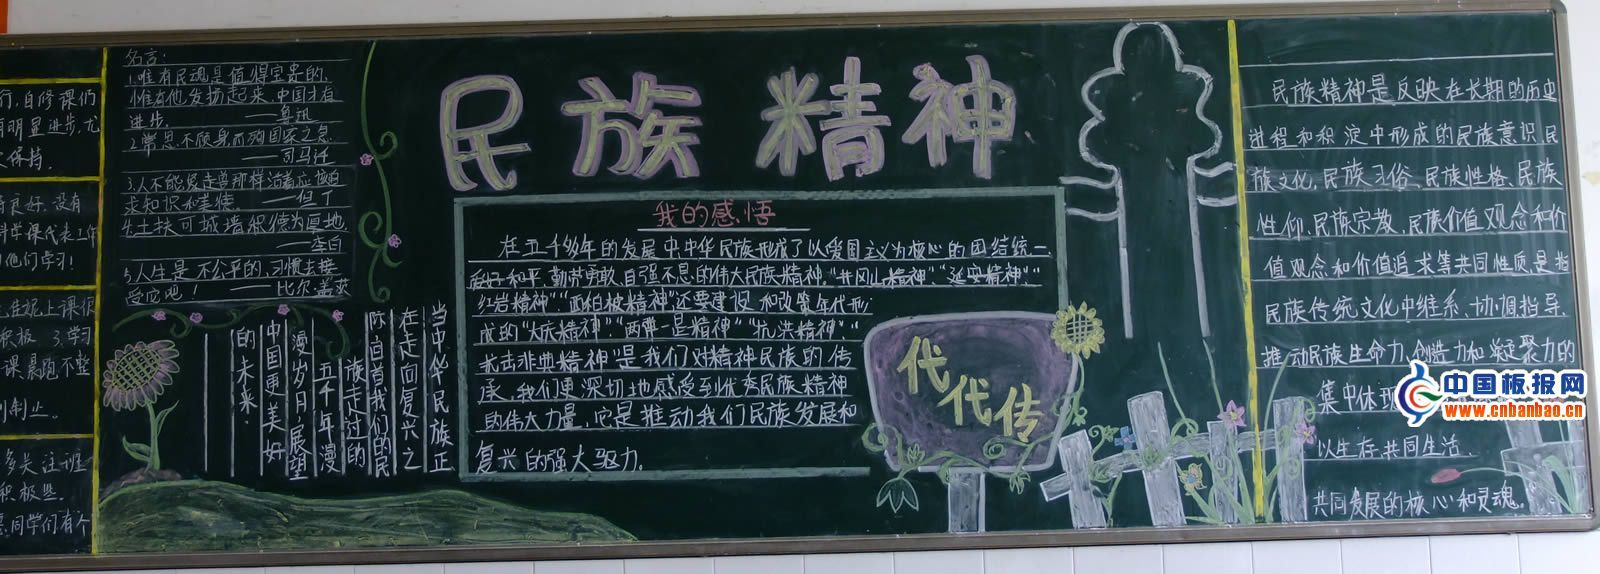 行,自修课们
有明显进步,尤
保持。
良好,没有
科学课代表工作
他们学习!
上课很
积极 3.学习
课晨跑不整
制止。
多关注班
积极些。
同学们有个
名言:
1.唯有民魂是值得宝贵的,
惟有他发扬起来,中国才有
进步。 ——鲁迅
2.常思不顾身而殉国家之急
——司马迁
3.人不能像走兽那样活着应该追
求知识和美德。 ——但丁
4.土扶可城墙积德为厚地
——李白
5.人生是不公平的,习惯去接
受它吧! ——比尔·盖茨
当中华民族正
在走向复兴之
际,回首我们的民
族走过的
五千年漫
漫岁月,展望
中国更美好
的未来.
民族精神
我的感悟
在五千多年的发展中,中华民族形成了以爱国主义为核心的团结统一
爱好和平,勤劳勇敢,自强不息的伟大民族精神。“井冈山精神”、“延安精神”、“
红岩精神”“西柏坡精神”还要建设和改革年代形
成的“大庆精神”“两弹一星精神”“抗洪精神”、“
抗击非典精神”是我们对精神民族的传
承,我们更深切地感受到优秀民族精神
的伟大力量,它是推动我们民族发展和
复兴的强大驱力.
代代传
民族精神是反映在长期的历史
进程和积淀中形成的民族意识,民
族文化,民族习俗、民族性格、民族
性仰、民族宗教、民族价值观念和价
值观念和价值追求等共同性质,是指
民族传统文化中维系、协调指导,
推动民族生命力,创造力和凝聚力的
集中体现
以生存,共同生活.
共同发展的核心和灵魂。
中国板报网
www.cnbanbao.cn